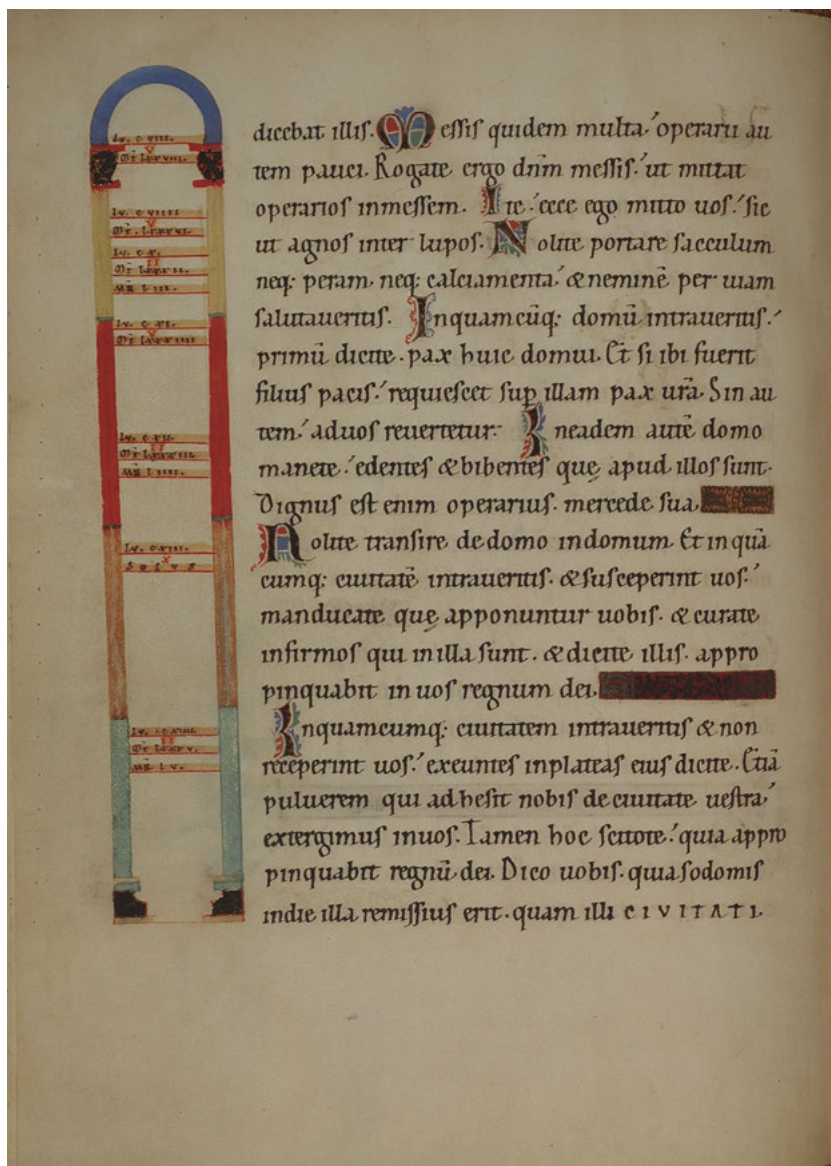 dicebat illis. Messis quidem multa operarii au
tem pauci. Rogate ergo dnm messis. ut mittat
operarios inmessem. Ite. ecce ego mitto uos. sic
ut agnos inter lupos. Nolite portare sacculum
neq; peram. neq; calciamenta. & neminē per uiam
salutaueritis. Inquamcūq; domū intraueritis.
primū dicite. pax huic domui. Et si ibi fuerit
filius pacis. requiescet sup illam pax ura. Sin au
tem. aduos reuertetur. Ineadem autē domo
manete. edentes & bibentes quę apud illos sunt.
Dignus est enim operarius. mercede sua.
Nolite transire dedomo indomum. Et in quā
cumq; ciuitatē intraueritis. & susceperint uos.
manducate quę apponuntur uobis. & curate
infirmos qui in illa sunt. & dicite illis. appro
pinquabit in uos regnum dei.
Inquamcumq; ciuitatem intraueritis & non
receperint uos. exeuntes inplateas eius dicite. Etiā
puluerem qui adhesit nobis de ciuitate uestra
extergimus inuos. Tamen hoc scitote. quia appro
pinquabit regnū dei. Dico uobis. quia sodomis
indie illa remissius erit. quam illi CIVITATI.
Lv. c. viii.
V
Lv. c. viiii.
V
Lv. c. x.
II
Lv. c. xi.
V
Lv. c. xii.
II
Lv. c. xiii.
X
Solvs
Lv. c. xiiii.
II